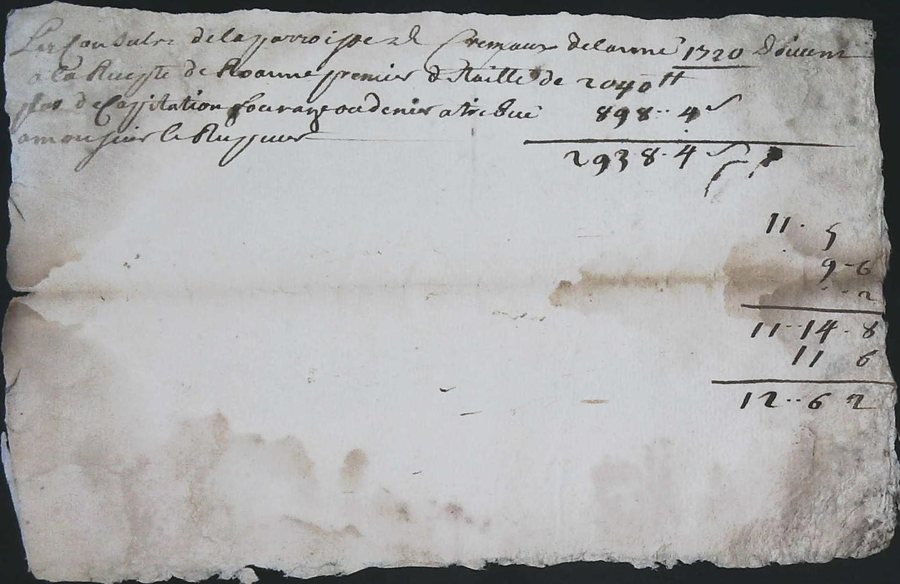 Les Consulz de la parroisse de Cremaux de l'anné 1720 doivent
a la Recepte de Roanne premier de Taille de 2040 tt
plus de Cappitation fourage ou denier atribué 898 .. 4 s
a monsieur le
2938 . 4 s
11 . 5
9 - 6
.. 2
11 . 14 . 8
11 6
12 .. 6 2